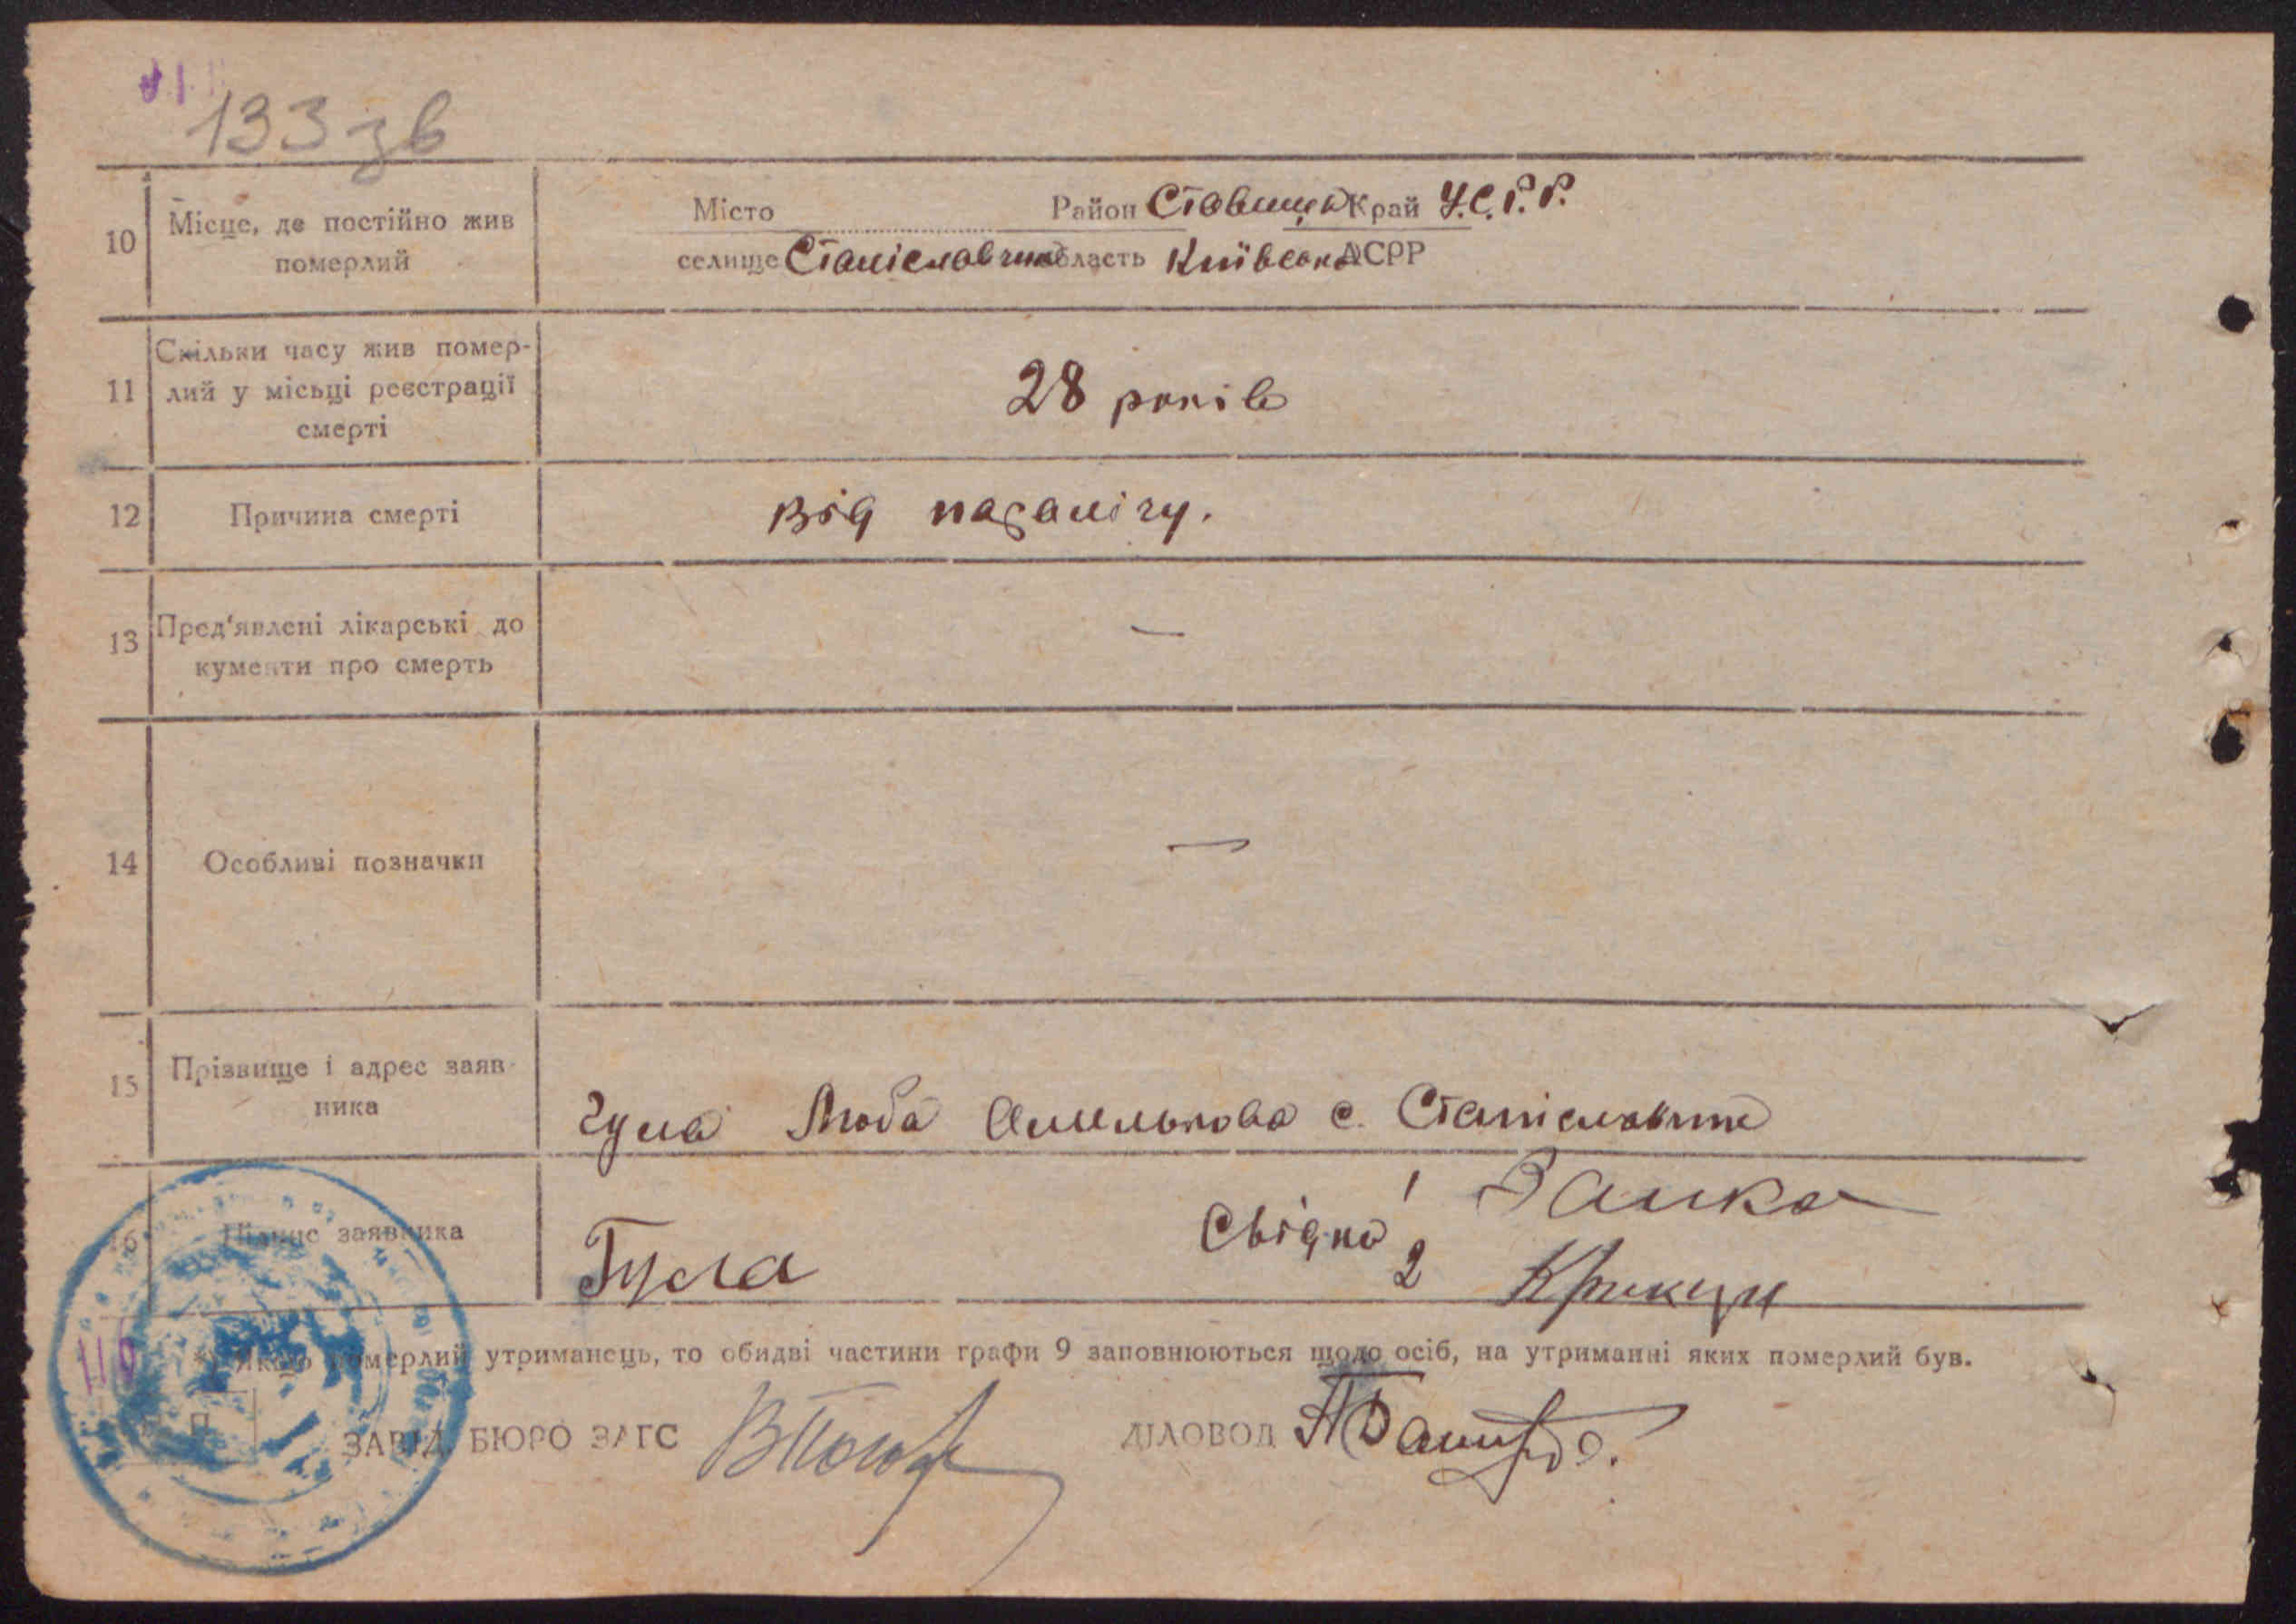 133 зв
10 Місце, де постійно жив померлий
Місто Район Ставище Край У.С.Р.Р.
селище Станіславчик область Київська АСРР
11 Скільки часу жив помер-
лий у місьці реєстрації
смерті
28 років
12 Причина смерті
Від паралічу.
13 Пред'явлені лікарські до
кументи про смерть
—
14 Особливі позначки
—
15 Прізвище і адрес заяв-
ника
Гула Люба Омелькова с. Станіславчик
16 Підпис заявника
Гула
Свідки 1 Заика
2 Крикун
*) Якщо померлий утриманець, то обидві частини графи 9 заповнюються щодо осіб, на утриманні яких померлий був.
ЗАВІД. БЮРО ЗАГС
ДІЛОВОД